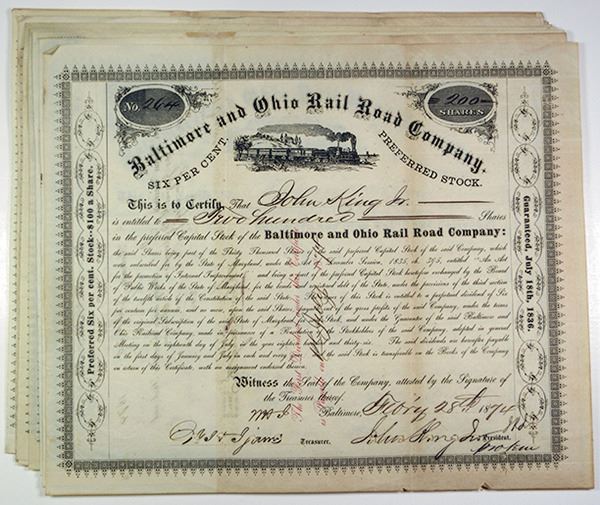 No. 264
200
SHARES
Baltimore and Ohio Rail Road Company.
SIX PER CENT. PREFERRED STOCK.
Preferred Six per cent. Stock--$100 a Share.
Guaranteed, July 18th, 1836.
This is to Certify, That John King Jr.
is entitled to Two hundred Shares
in the preferred Capital Stock of the Baltimore and Ohio Rail Road Company:
the said Shares being part of the Thirty Thousand said preferred Capital Stock of the said Company, which
were subscribed for by the State of Maryland, under the Act of December Session, 1835, ch. 395, entitled "An Act
for the promotion of Internal Improvement," and being a part of the preferred Capital Stock heretofore exchanged by the Board
of Public Works of the State of Maryland, for the bonds or registered debt of the State, under the provisions of the third section
of the twelfth article of the Constitution of the said State. The of this Stock is entitled to a perpetual dividend of Six
per centum per annum, and no more, upon the said Shares, out of the gross profits of the said Company, under the terms
of the original Subscription of the said State of Maryland to the said Stock, and under the Guarantee of the said Baltimore and
Ohio Railroad Company, made in pursuance of a Resolution of the Stockholders of the said Company, adopted in general
Meeting on the eighteenth day of July, in the year eighteen hundred and thirty-six. The said dividends are hereafter payable
on the first days of January and July in each and every year the said Stock is transferable on the Books of the Company
on return of this Certificate, with an assignment endorsed thereon.
Witness the Seal of the Company, attested by the Signature of
the Treasurer thereof.
Baltimore, Feb'ry 28th 1874
Treasurer.
John King Jr. President.
pro tem